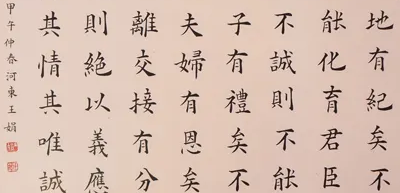 地有紀矣不
能化育君臣
不誠則不能
子有禮矣不
夫婦有恩矣
離交接有分
則絕以義應
其情其唯誠
甲午仲春河東王娟